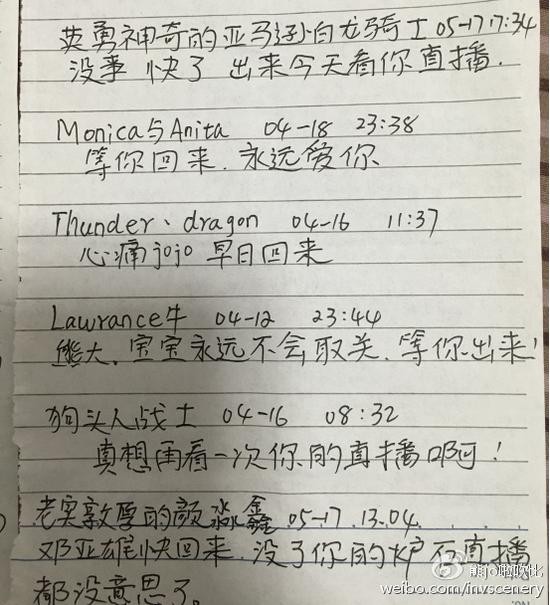 英勇神奇的亚马逊白龙骑士 05-17 17:34
没事 快了 出来今天看你直播.
Monica与Anita 04-18 23:38
等你回来.永远爱你
Thunder、dragon 04-16 11:37
心痛jojo 早日回来
Lawrance牛 04-12 23:44
熊大.宝宝永远不会取关.等你出来!
狗头人战士 04-16 08:32
真想再看一次你的直播啊!
老实敦厚的颜淼鑫 05-17.13.04
邓亚雄快回来.没了你的炉石直播
都没意思了。
weibo.com/invscenery